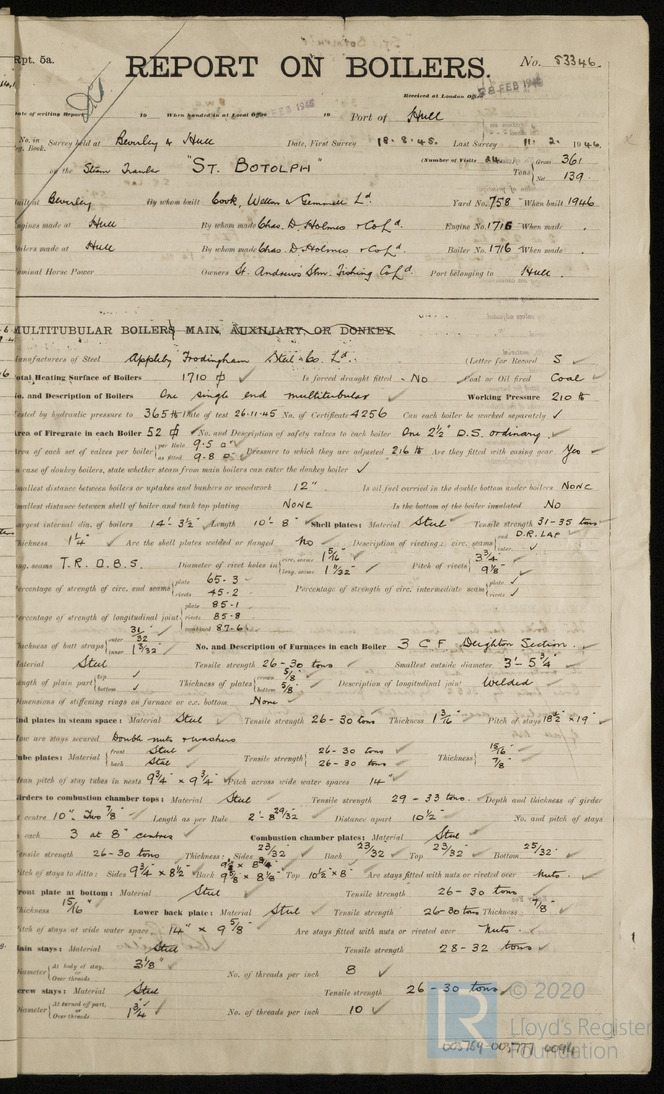 Rpt. 5a.
REPORT ON BOILERS.
No. 53346.
Received at London Office
28 FEB 1946
Date of writing Report 19 When handed in at Local Office FEB 1946 19 Port of Hull
No. in Reg. Book. Survey held at Beverley & Hull Date, First Survey 18. 8. 45. Last Survey 11. 2. 1946
(Number of Visits 24.
on the Steam Trawler "ST. BOTOLPH" Tons { Gross 361 Net 139
Built at Beverley By whom built Cook, Welton & Gemmell Ld. Yard No. 758 When built 1946
Engines made at Hull By whom made Chas. D. Holmes & Co Ld. Engine No. 1716 When made
Boilers made at Hull By whom made Chas. D. Holmes & Co Ld. Boiler No. 1716 When made
Nominal Horse Power Owners St. Andrews Stm. Fishing Co Ld. Port belonging to Hull.
MULTITUBULAR BOILERS MAIN, AUXILIARY, OR DONKEY
Manufacturers of Steel Appleby Frodingham Steel Co. Ld. (Letter for Record S
Total Heating Surface of Boilers 1710 Is forced draught fitted No Coal or Oil fired Coal
No. and Description of Boilers One single end multitubular Working Pressure 210 lb
Tested by hydraulic pressure to 365 lb Date of test 26.11.45 No. of Certificate 4256 Can each boiler be worked separately ✓
Area of Firegrate in each Boiler 52 No. and Description of safety valves to each boiler One 2½" D.S. ordinary.
Area of each set of valves per boiler { per Rule 9.5 as fitted 9.8 Pressure to which they are adjusted 216 lb Are they fitted with easing gear Yes
In case of donkey boilers, state whether steam from main boilers can enter the donkey boiler ✓
Smallest distance between boilers or uptakes and bunkers or woodwork 12" Is oil fuel carried in the double bottom under boilers NONE
Smallest distance between shell of boiler and tank top plating NONE Is the bottom of the boiler insulated No
Largest internal dia. of boilers 14'-3½" Length 10'-8" Shell plates: Material Steel Tensile strength 31-35 tons
Thickness 1¼" Are the shell plates welded or flanged No Description of riveting: circ. seams { end D.R. LAP inter. ✓
long. seams T.R.D.B.S. Diameter of rivet holes in { circ. seams 1 5/16" long. seams 1 11/32" Pitch of rivets { 3¾" 9⅛"
Percentage of strength of circ. end seams { plate 65.3 rivets 45.2 Percentage of strength of circ. intermediate seam { plate ✓ rivets ✓
Percentage of strength of longitudinal joint { plate 85.1 rivets 85.8 combined 87.6
Thickness of butt straps { outer 31/32 inner 1 3/32" No. and Description of Furnaces in each Boiler 3 C F Deighton Section.
Material Steel Tensile strength 26-30 tons Smallest outside diameter 3'-5¾"
Length of plain part { top ✓ bottom ✓ Thickness of plates { crown 5/8" bottom 5/8" Description of longitudinal joint Welded
Dimensions of stiffening rings on furnace or c.c. bottom None
End plates in steam space: Material Steel Tensile strength 26-30 tons Thickness 1 3/16" Pitch of stays 18½" × 19"
How are stays secured Double nuts & washers
Tube plates: Material { front Steel back Steel Tensile strength { 26-30 tons 26-30 tons Thickness { 15/16" 7/8"
Mean pitch of stay tubes in nests 9¾" × 9¾" Pitch across wide water spaces 14"
Girders to combustion chamber tops: Material Steel Tensile strength 29-33 tons. Depth and thickness of girder
at centre 10¼" Two 7/8" Length as per Rule 2'-8 29/32" Distance apart 10½" No. and pitch of stays
in each 3 at 8" centres Combustion chamber plates: Material Steel
Tensile strength 26-30 tons Thickness: Sides 23/32" Back 23/32" Top 23/32" Bottom 25/32"
Pitch of stays to ditto: Sides 9¾" × 8½" Back 9⅝" × 8⅛" Top 10½" × 8" Are stays fitted with nuts or riveted over Nuts.
Front plate at bottom: Material Steel Tensile strength 26-30 tons
Thickness 15/16" Lower back plate: Material Steel Tensile strength 26-30 tons Thickness 7/8"
Pitch of stays at wide water space 14" × 9⅝" Are stays fitted with nuts or riveted over Nuts.
Main stays: Material Steel Tensile strength 28-32 tons
Diameter { At body of stay, or Over threads 3⅛" No. of threads per inch 8
Screw stays: Material Steel Tensile strength 26-30 tons
Diameter { At turned off part, or Over threads 1¾" No. of threads per inch 10
LR © 2020
Lloyd's Register
Foundation
003769-003777 0094